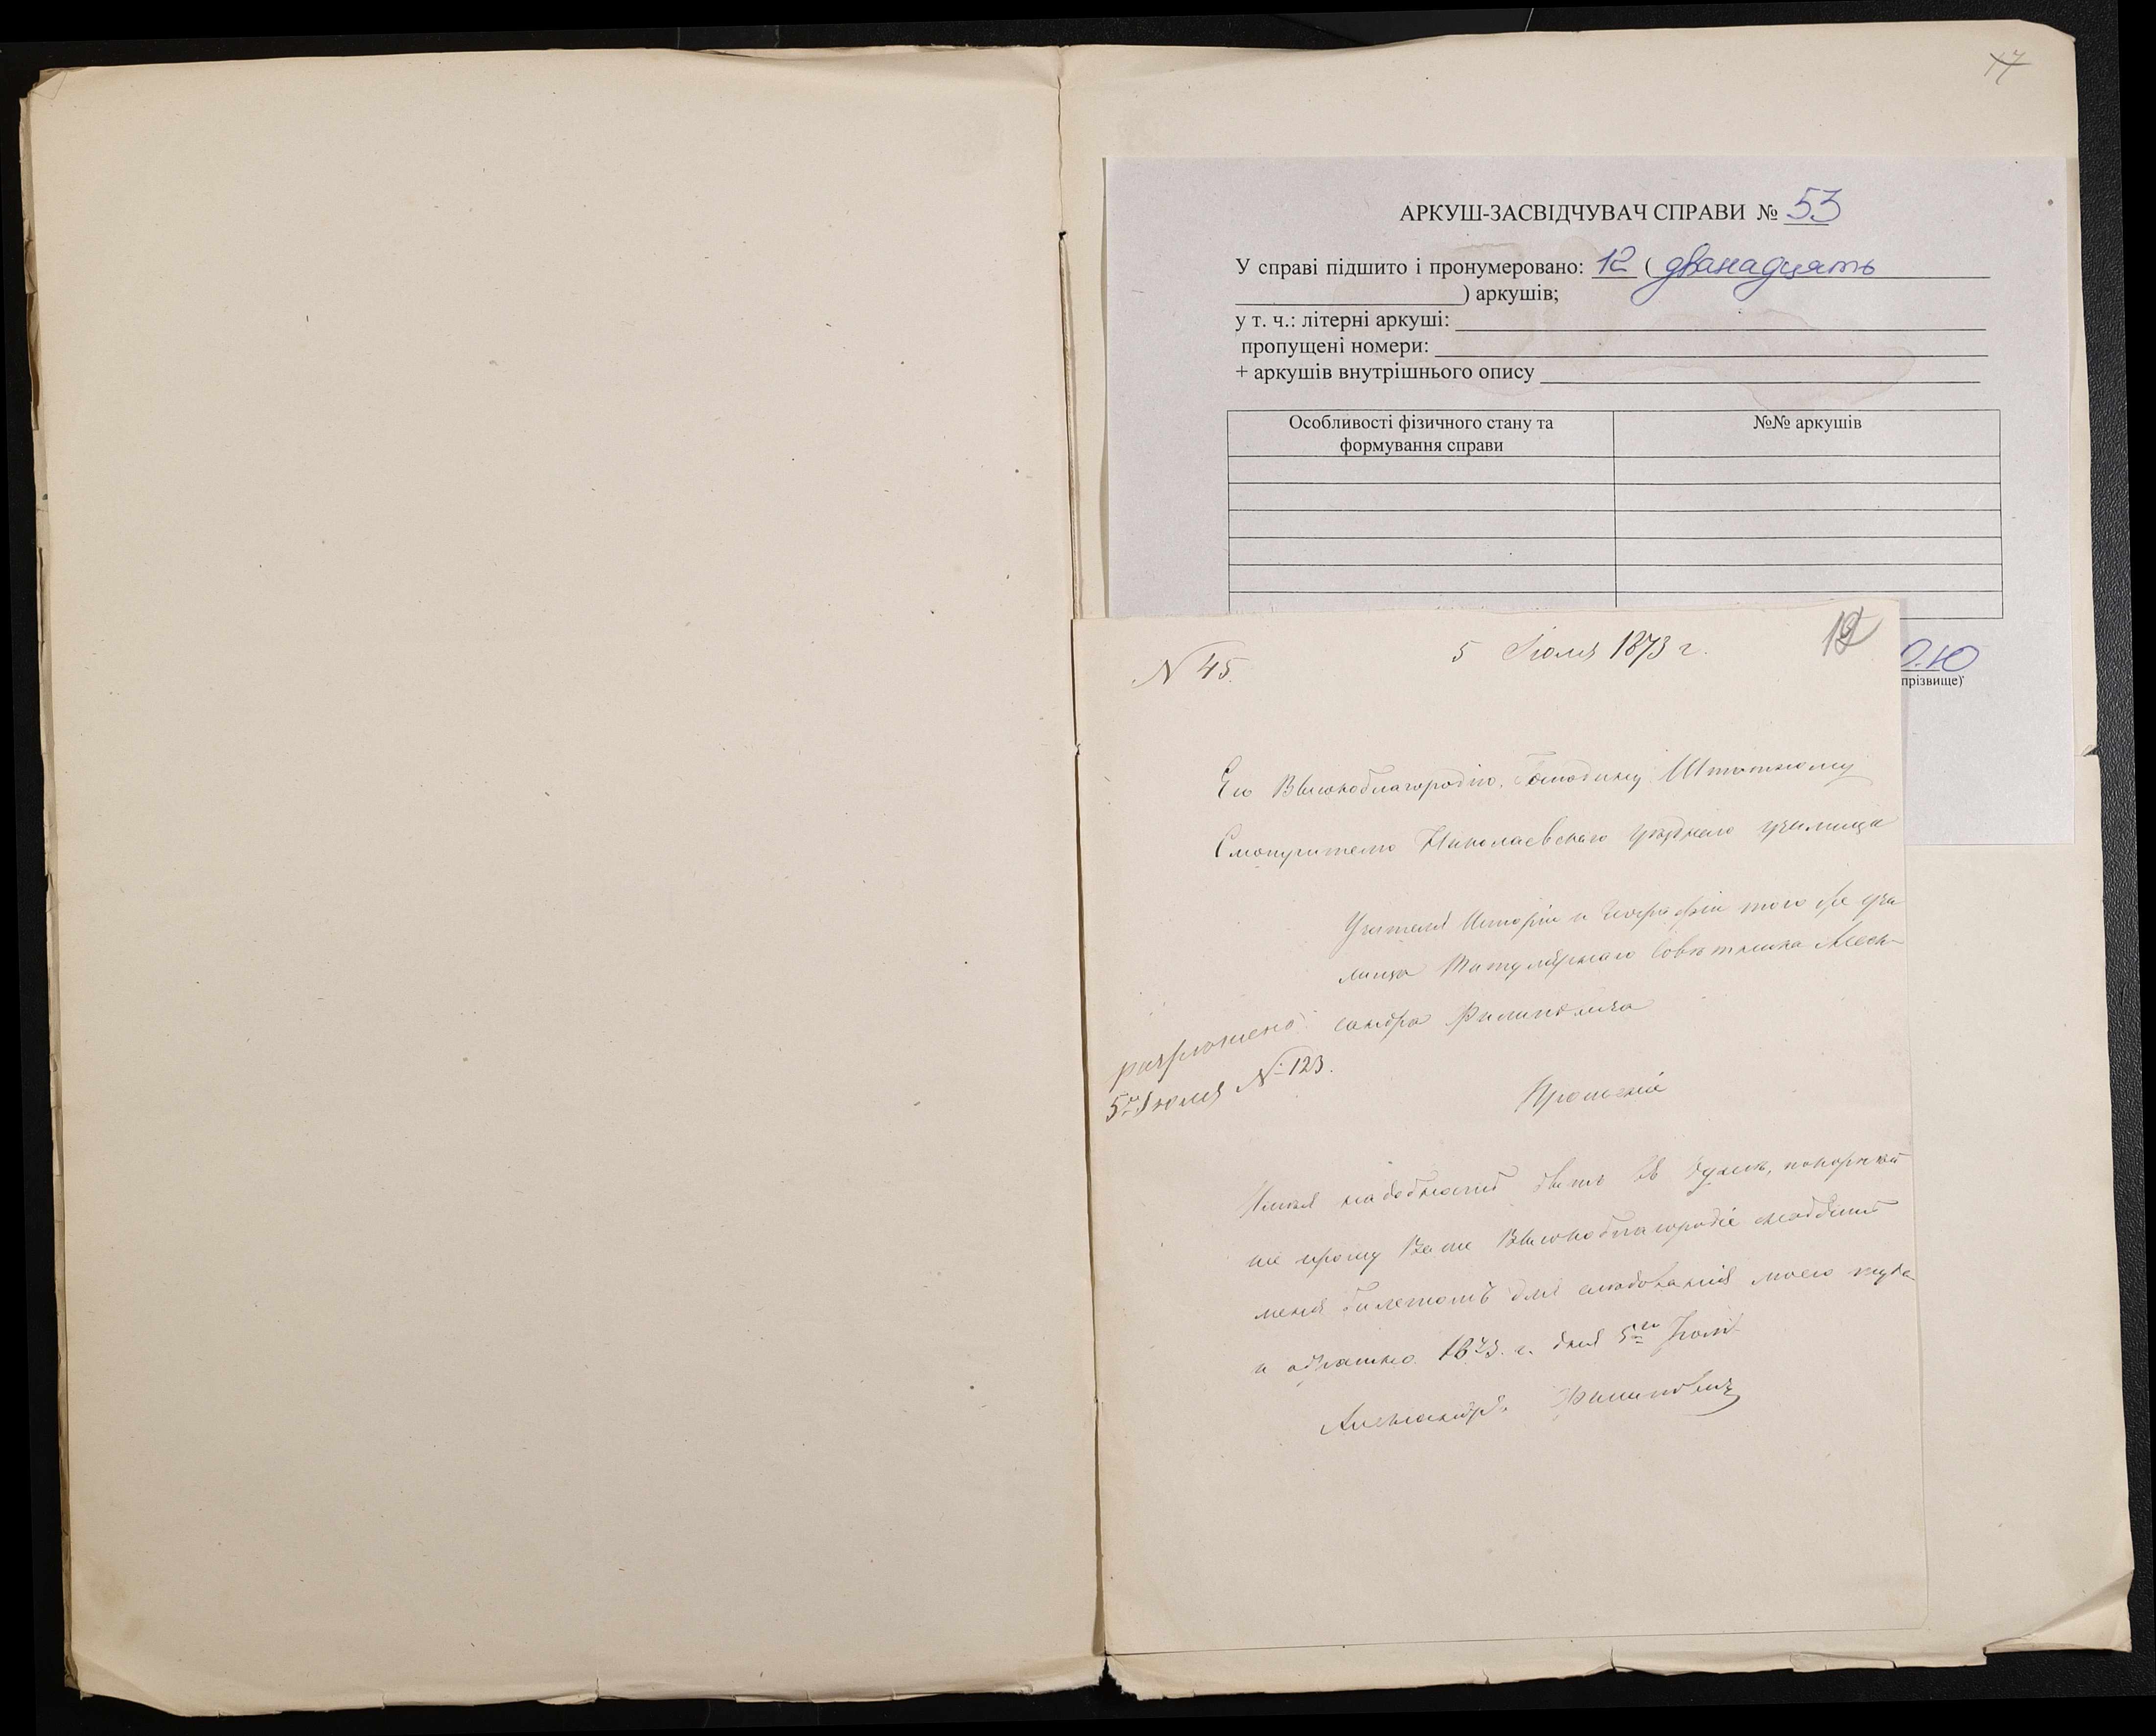 17
АРКУШ-ЗАСВІДЧУВАЧ СПРАВИ № 53
У справі підшито і пронумеровано: 12 ( дванадцять
) аркушів;
у т. ч.: літерні аркуші:
пропущені номери:
+ аркушів внутрішнього опису
Особливості фізичного стану та формування справи
№№ аркушів
О.Ю
прізвище)
12
N 45.
5 Іюля 1873 г.
Его Высокоблагородію, Господину Штатному
Смотрителю Николаевскаго уѣзднаго училища
Учителя Исторіи и Географіи того же учи
лища Титулярнаго Совѣтника Алек-
сандра Филиповича
разрѣшено
5го Іюля № 123.
Прошеніе
Имѣя надобность быть въ, покорнѣй
ше прошу Ваше Высокоблагородіе снабдить
меня билетомъ для слѣдованія моего туда
и обратно. 1873. г. дня 5го Іюля
Александръ Филиповичъ